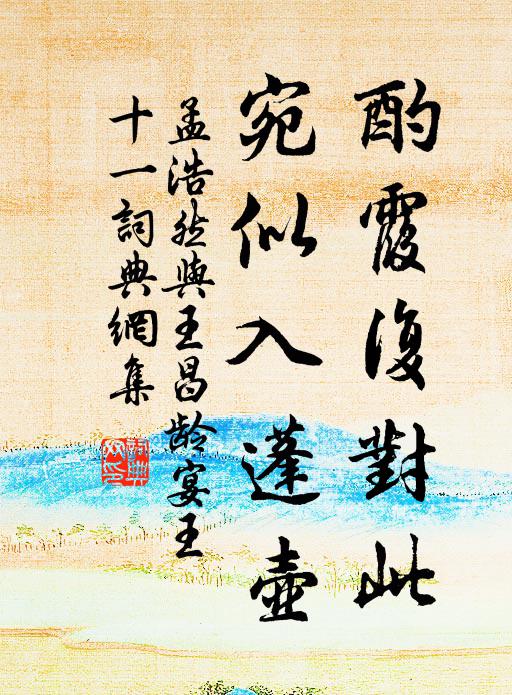 酌霞復對此
宛似入蓬壺
孟浩然與王昌龄宴王
十一詞典網集